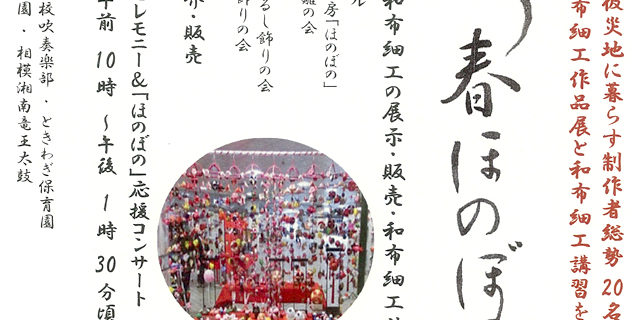 被災地に暮らす制作者総勢20名
布細工作品展と和布細工講習を
春ほのぼ
和布細工の展示・販売・和布細工
ル
房「ほのぼの」
雛の会
るし飾りの会
飾りの会
示・販売
レモニー&「ほのぼの」応援コンサート
午前10時～午後1時30分頃
校吹奏楽部・ときわぎ保育園
園・相模湘南竜王太鼓